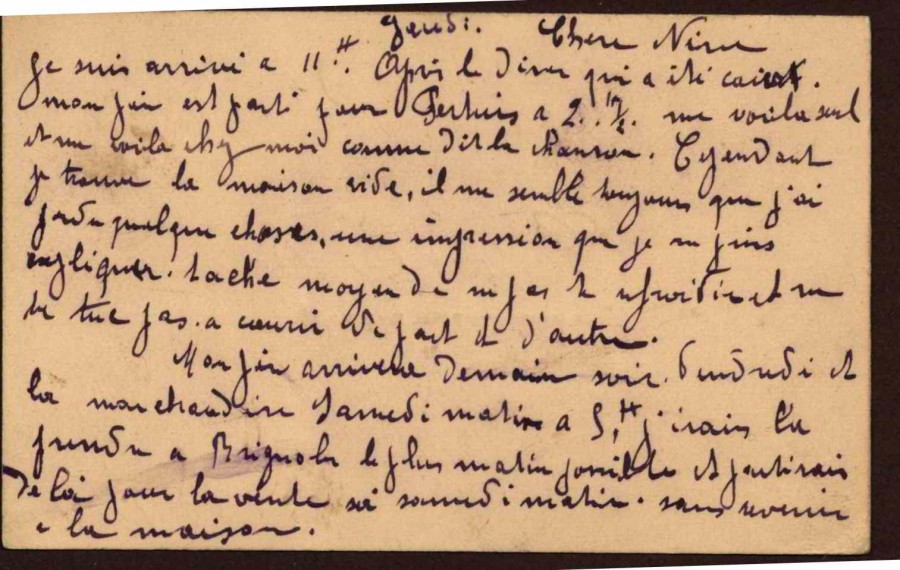 Jeudi. Chere Nine
Je suis arrivé a 11H. Après le diner qui a été
mon père est parti pour Pertuis a 2.H½. me voila seul
et me voila chez moi comme dit la chanson. Cependant
je trouve la maison vide, il me semble toujours que j'ai
perdu quelque choses, une impression que je ne puis
expliquer. tache moyen de ne pas te refroidir et ne
te tue pas a courir de part et d'autre.
Mon père arrivera demain soir. Vendredi et
la marchandise Samedi matin a 5H, j'irais la
prendre a Brignoles le plus matin possible et partirais
de là pour la vente samedi matin. sans revenir
a la maison.